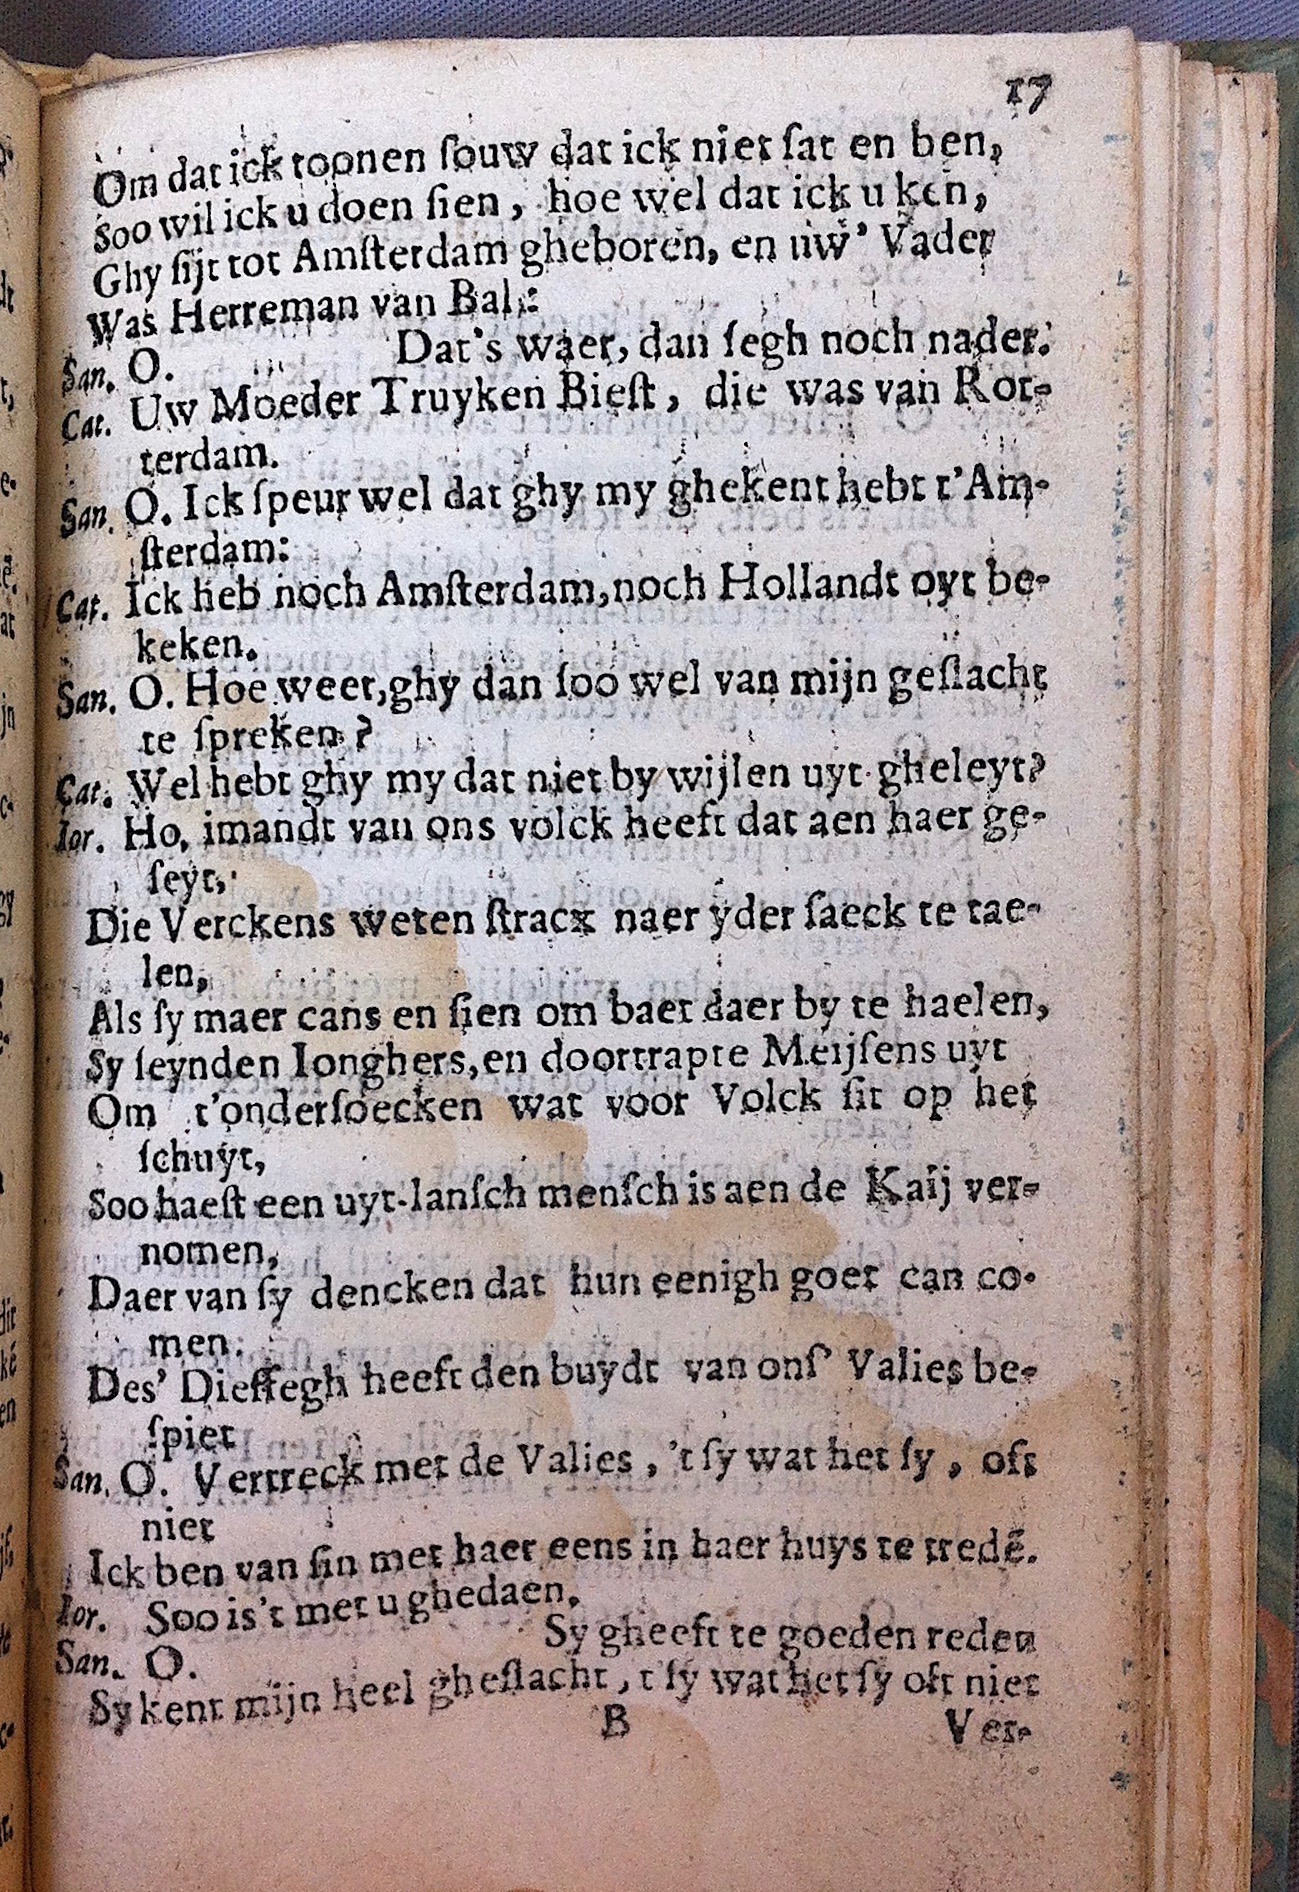 17
Om dat ick toonen ſouw dat ick niet ſat en ben,
Soo wil ick u doen ſien, hoe wel dat ick u ken,
Ghy ſijt tot Amſterdam gheboren, en uw' Vader
Was Herreman van Bal:
San. O. Dat's waer, dan ſegh noch nader.
Cat. Uw Moeder Truyken Bieſt, die was van Rot-
terdam.
San. O. Ick ſpeur wel dat ghy my ghekent hebt t'Am-
ſterdam:
Cat. Ick heb noch Amſterdam, noch Hollandt oyt be-
keken.
San. O. Hoe weet, ghy dan ſoo wel van mijn geſlacht
te ſpreken?
Cat. Wel hebt ghy my dat niet by wijlen uyt gheleyt?
Ior. Ho, imandt van ons volck heeft dat aen haer ge-
ſeyt,
Die Verckens weten ſtracx naer yder ſaeck te tae-
len,
Als ſy maer cans en ſien om baet daer by te haelen,
Sy ſeynden Ionghers, en doortrapte Meijſens uyt
Om t'onderſoecken wat voor Volck ſit op het
ſchuyt,
Soo haeſt een uyt-lanſch menſch is aen de Kaij ver-
nomen,
Daer van ſy dencken dat hun eenigh goet can co-
men.
Des' Dieffegh heeft den buydt van onſ' Valies be-
ſpiet
San. O. Vertreck met de Valies, 't ſy wat het ſy, oft
niet
Ick ben van ſin met haer eens in haer huys te tredē.
Ior. Soo is't met u ghedaen.
San. O. Sy gheeft te goeden reden
Sy kent mijn heel gheſlacht, t ſy wat het ſy oft niet
B Ver-